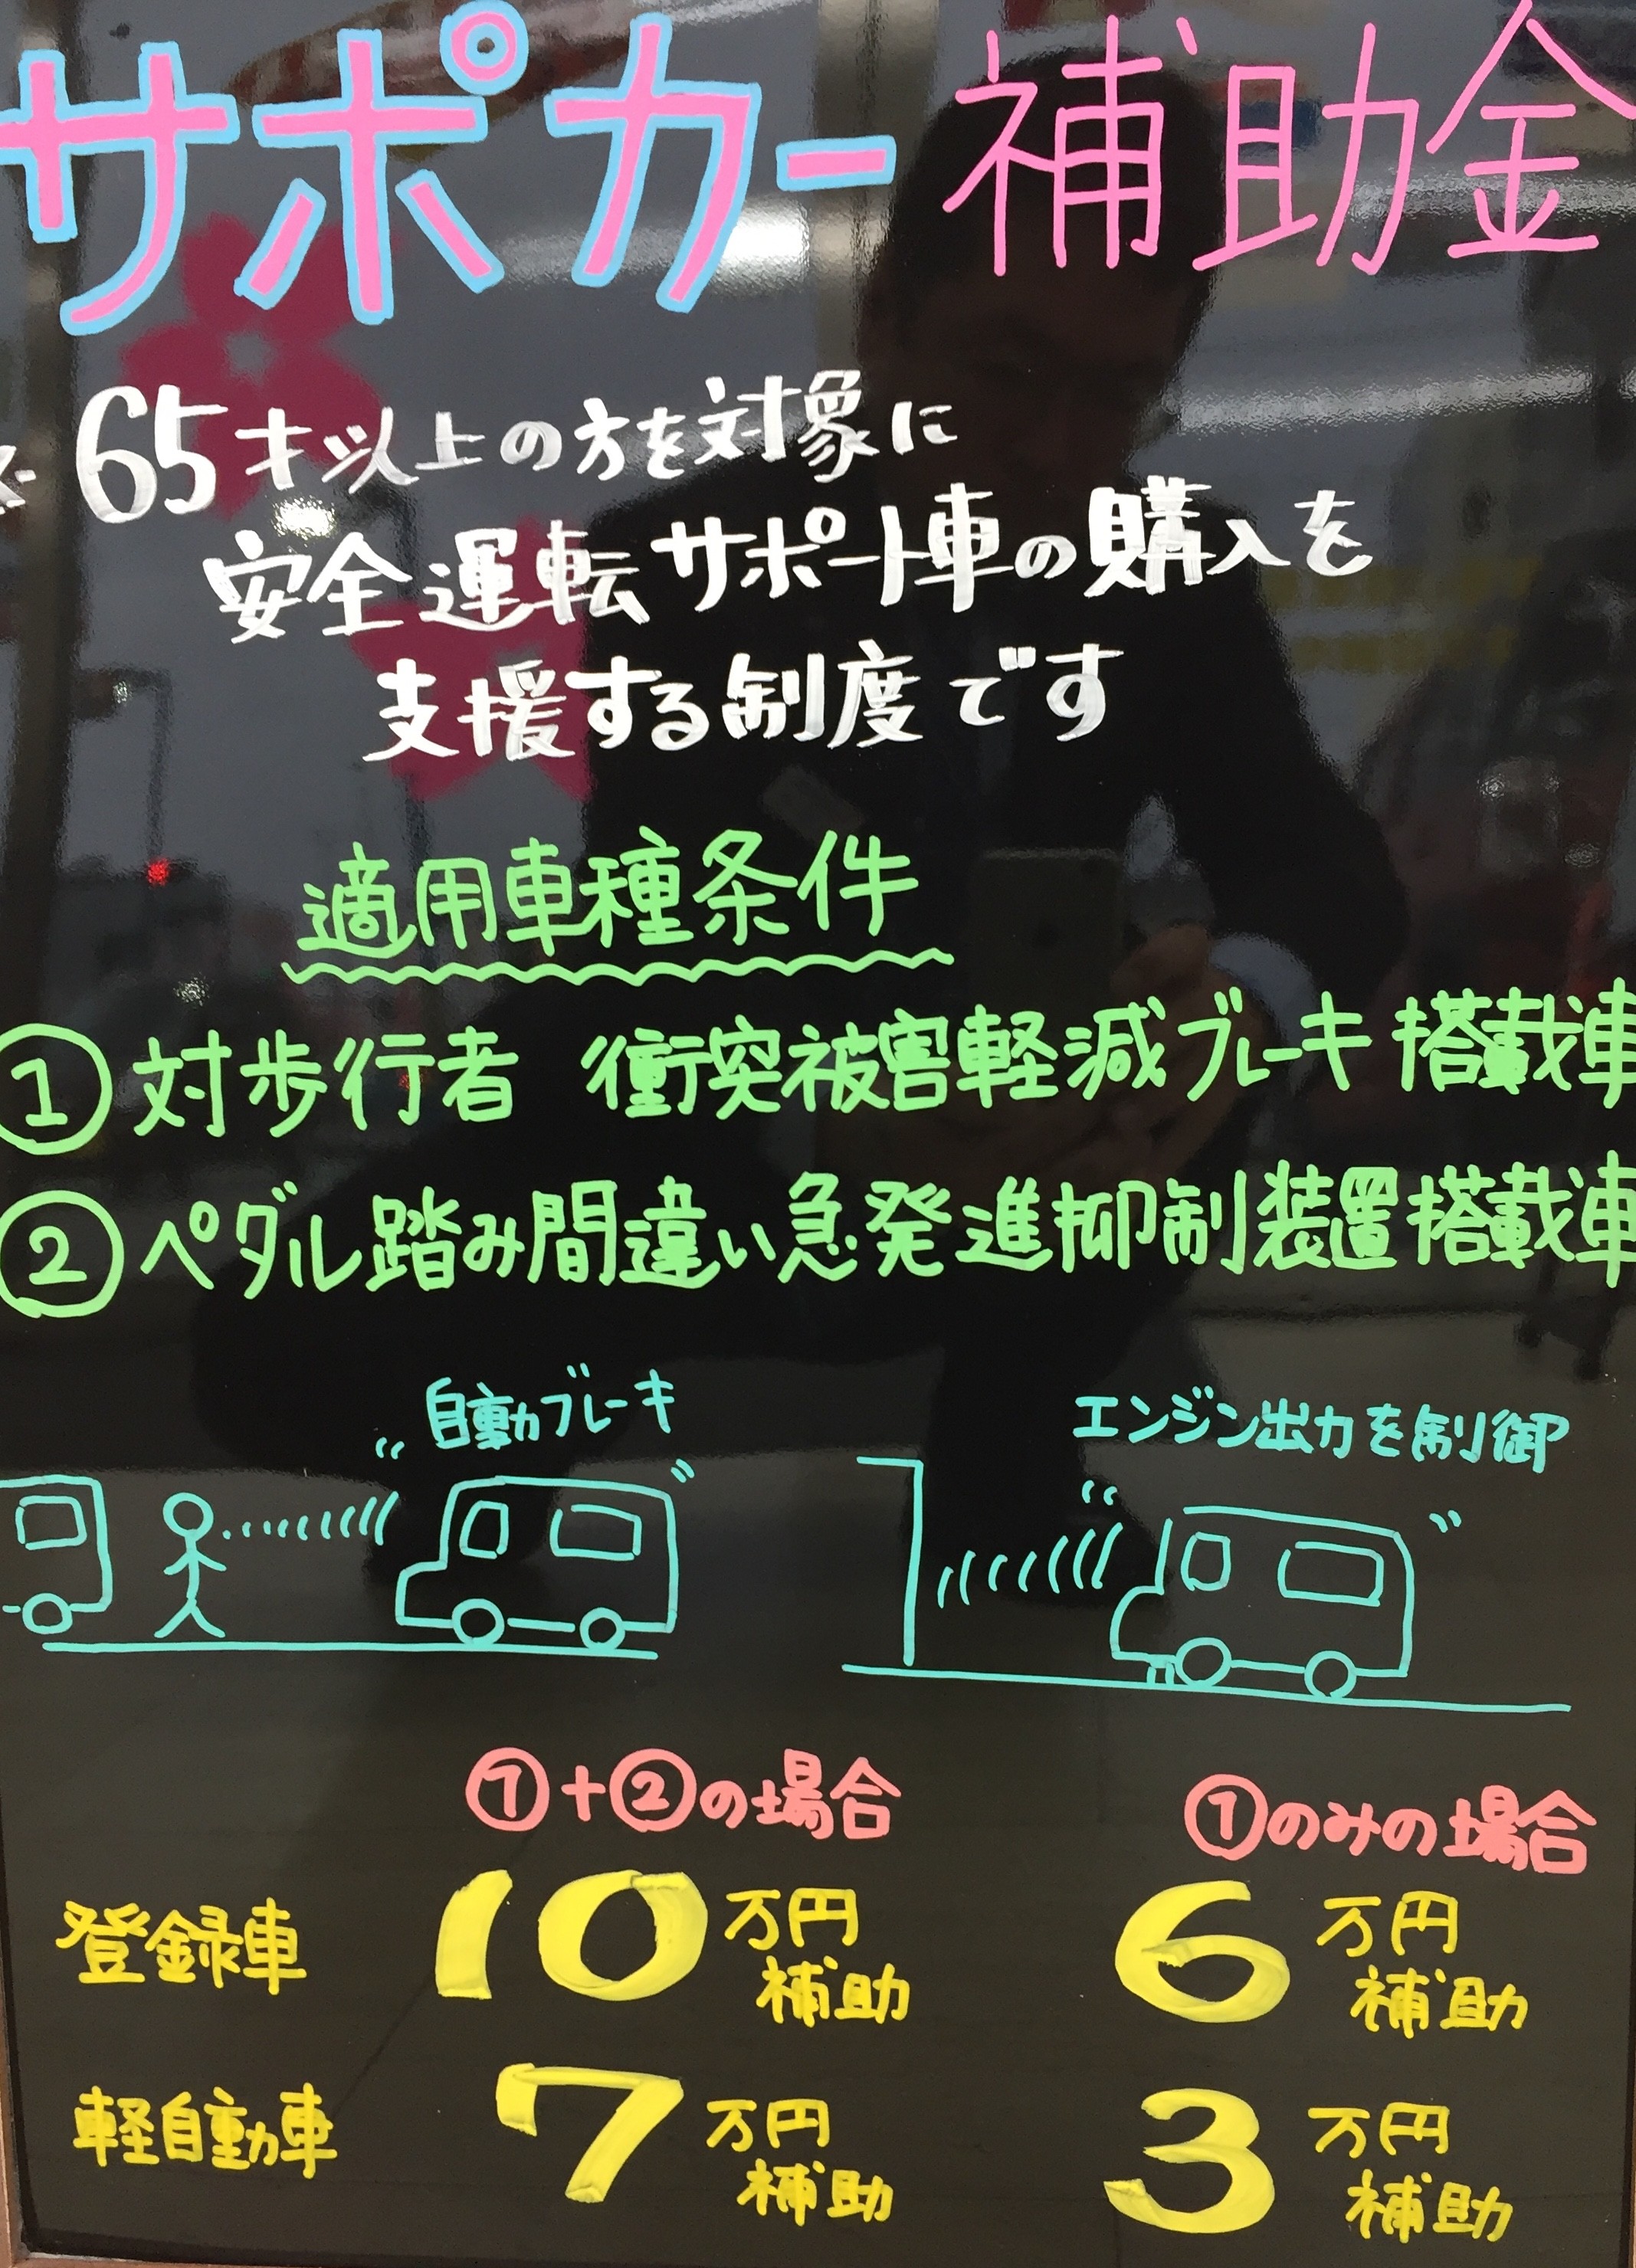 サポカー補助金
※65才以上の方を対象に
安全運転サポート車の購入を
支援する制度です
適用車種条件
①対歩行者 衝突被害軽減ブレーキ搭載車
②ペダル踏み間違い急発進抑制装置搭載車
自動ブレーキ
エンジン出力を制御
①+②の場合 ①のみの場合
登録車 10万円補助 6万円補助
軽自動車 7万円補助 3万円補助